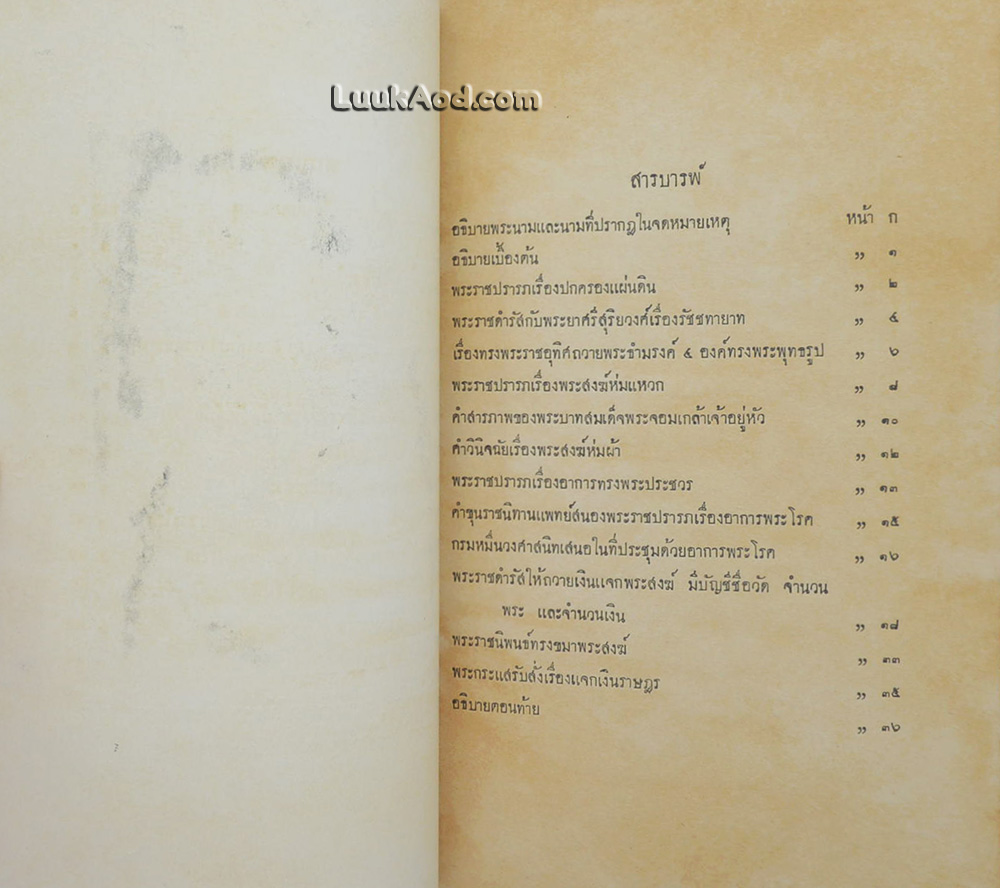 LuukAod.com
สารบารพ์
อธิบายพระนามและนามที่ปรากฏในจดหมายเหตุ หน้า ก
อธิบายเบื้องต้น ,, ๑
พระราชปรารภเรื่องปกครองแผ่นดิน ,, ๒
พระราชดำรัสกับพระยาศรีสุริยวงศ์เรื่องรัชชทายาท ,, ๔
เรื่องทรงพระราชอุทิศถวายพระธำมรงค์ ๕ องค์ทรงพระพุทธรูป ,, ๖
พระราชปรารภเรื่องพระสงฆ์ห่มแหวก ,, ๘
คำสารภาพของพระบาทสมเด็จพระจอมเกล้าเจ้าอยู่หัว ,, ๑๐
คำวินิจฉัยเรื่องพระสงฆ์ห่มผ้า ,, ๑๒
พระราชปรารภเรื่องอาการทรงพระประชวร ,, ๑๓
คำขุนราชนิทานแพทย์สนองพระราชปรารภเรื่องอาการพระโรค ,, ๑๕
กรมหมื่นวงศาสนิทเสนอในที่ประชุมด้วยอาการพระโรค ,, ๑๖
พระราชดำรัสให้ถวายเงินแจกพระสงฆ์ มีบัญชีชื่อวัด จำนวน
พระ และจำนวนเงิน ,, ๑๘
พระราชนิพนธ์ทรงขมาพระสงฆ์ ,, ๓๓
พระกระแสรับสั่งเรื่องแจกเงินราษฎร ,, ๓๕
อธิบายตอนท้าย ,, ๓๖